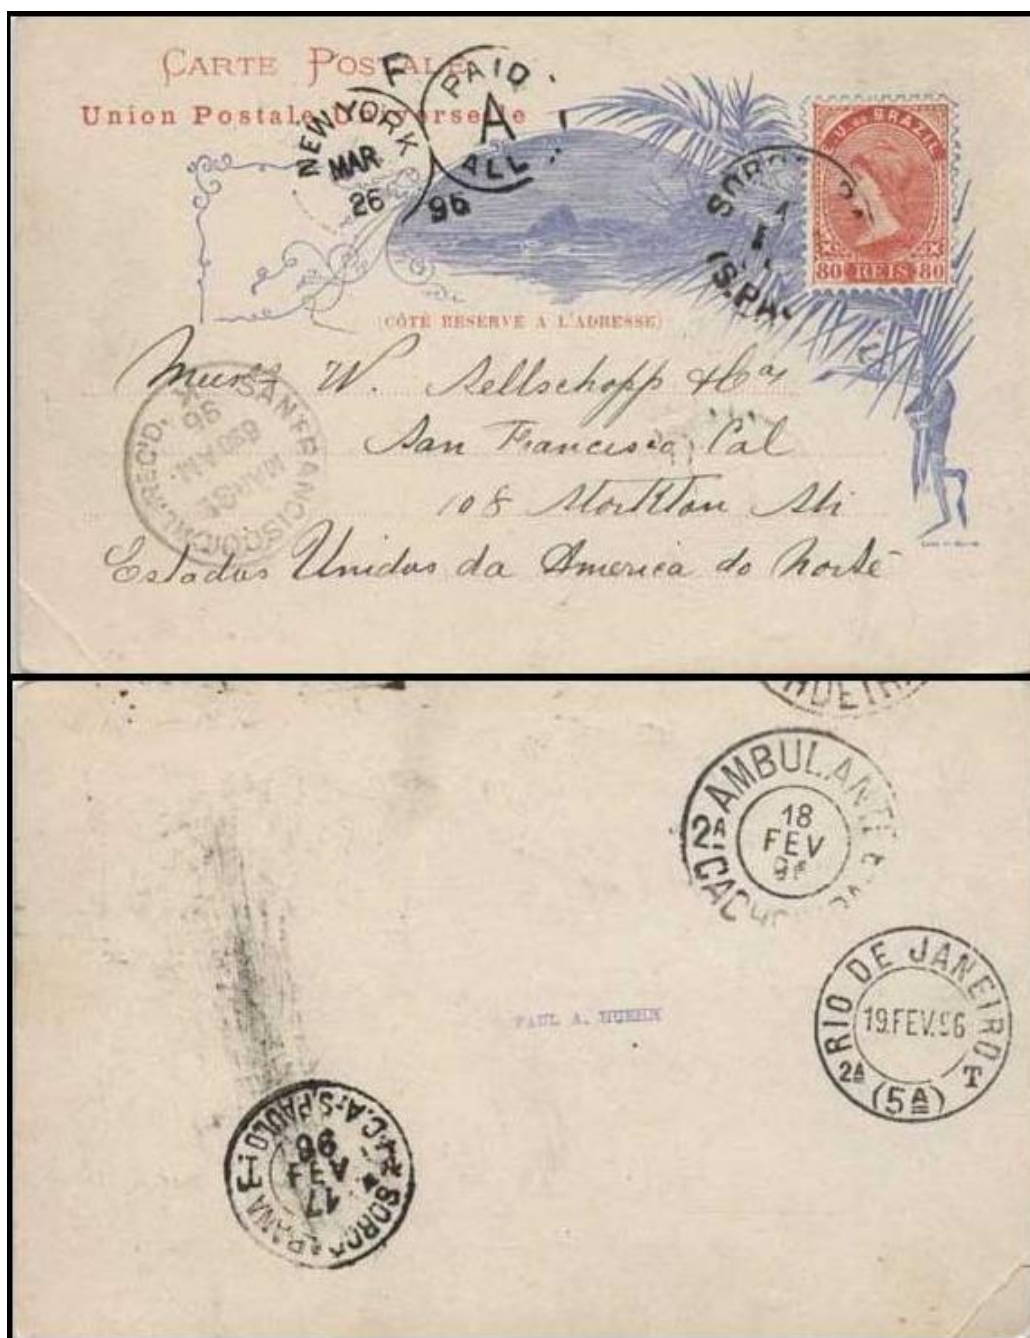 CARTE POSTALE
Union Postale Universelle
NEW YORK
MAR
26
96
F
PAID
A
ALL
U. BRAZIL
80 REIS 80
(S.PA
(CÔTÉ RESERVÉ A L'ADRESSE)
W. Sellschopp & Cas
San Francisco Cal
108 Stockton Str
Estados Unidos da America do Norte
SAN FRANCISCO, CAL. REC'D.
MAR 31
630 A.M.
96
AMBULANTE
2A
18
FEV
96
RIO DE JANEIRO
19.FEV.96
2A
(5A)
T
PAUL A. HUEHN
SOROCABANA
C.A-S.PAULO
17
FEV
96